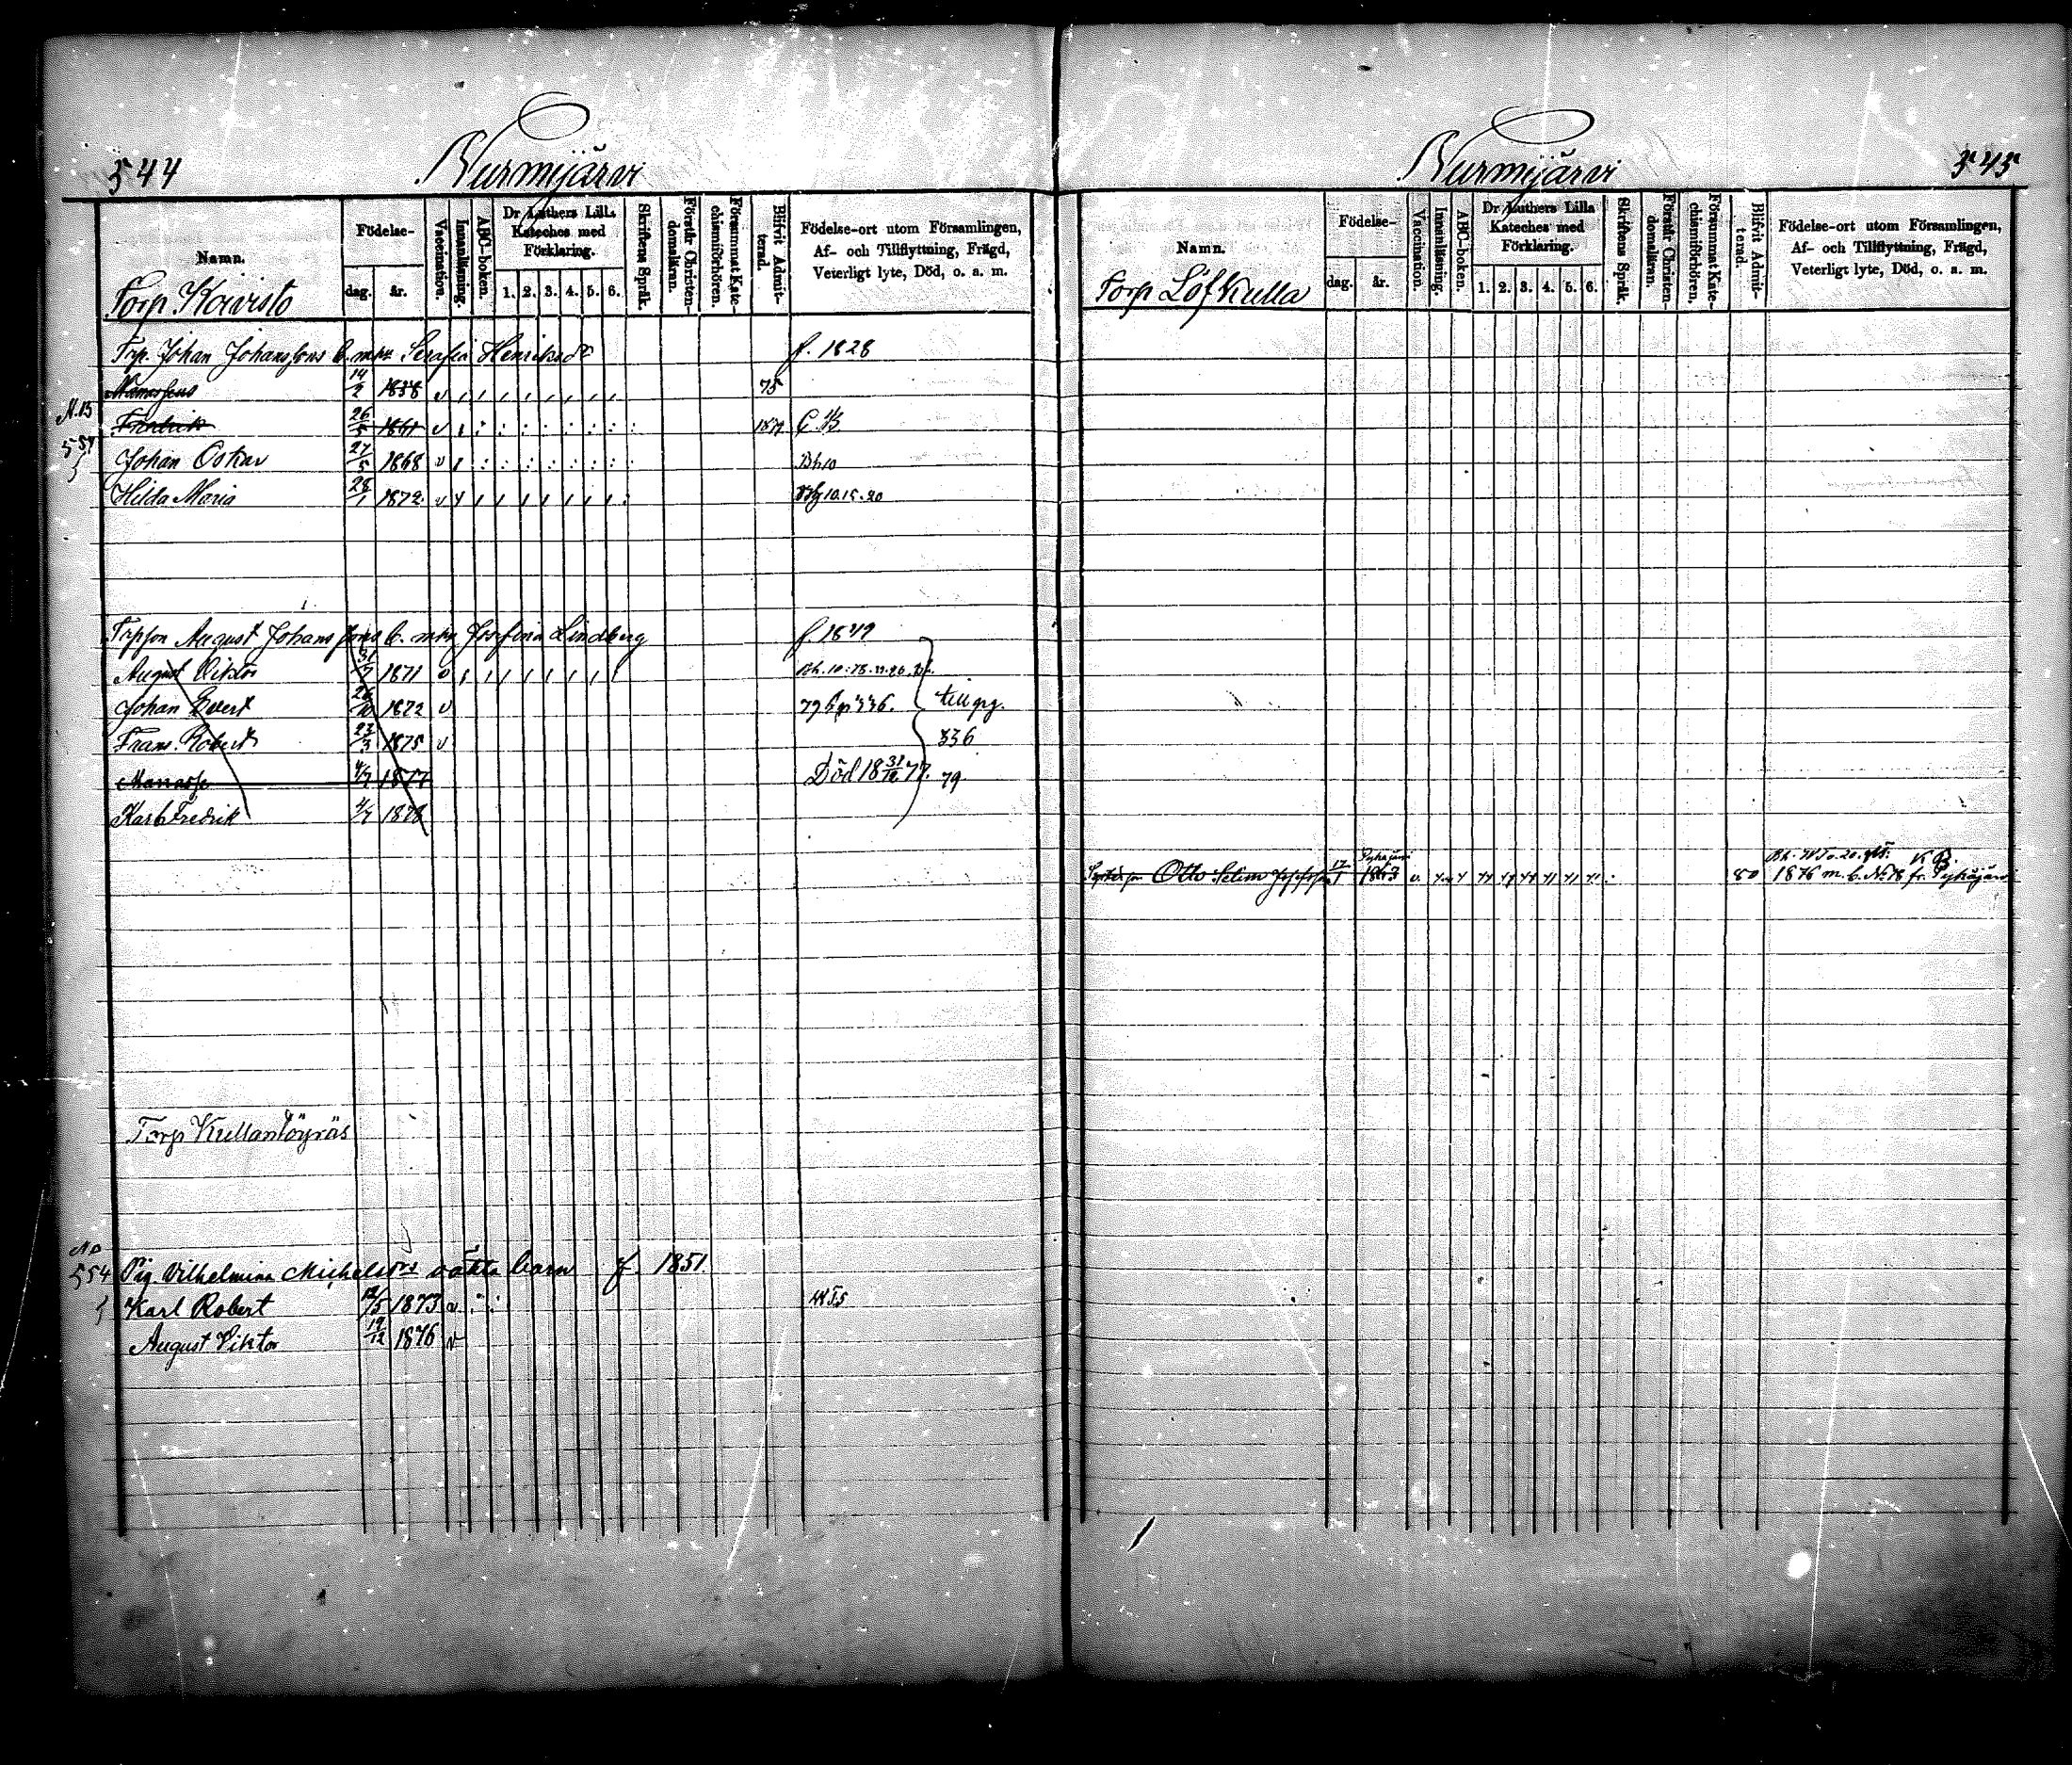 544
Nurmijärvi
Namn.
Födelse-
dag.
år.
Vaccination.
Innanläsning.
ABC-boken.
Dr Luthers Lilla
Kateches med
Förklaring.
1. 2. 3. 4. 5. 6.
Skriftens Språk.
Förstår Christen-
domsläran.
Försummat Kate-
chismiförhören.
Blifvit Admit-
terad.
Födelse-ort utom Församlingen,
Af- och Tillflyttning, Frägd,
Veterligt lyte, Död, o. a. m.
Torp Koivisto
Trp. Johan Johanssons b. m. Serafia Henriksdr f. 1828
14/2 1858 v 75
N. 15
Fredrik 26/5 1861 v 1877
554
Johan Oskar 27/5 1868 v Bh 10
Hilda Maria 28/1 1872 v 10.15.20
Trpson August Johanssons b. m. Josefina Lindberg f. 1849
August Viktor 31/7 1871 v
Johan Evert 26/10 1872 v 79 b. p. 336. till pg.
Frans Robert 23/3 1875 v 336
Manasse 4/7 1877 Död 18 31/12 77. 79
Karl Fredrik 4/7 1878
Torp Kullantöyräs
No
554 Pig. Vilhelmina Michelsdrs oäkta barn f. 1851.
Karl Robert 12/5 1873 v
August Viktor 19/12 1876 v
Nurmijärvi
545
Namn.
Födelse-
dag.
år.
Vaccination.
Innanläsning.
ABC-boken.
Dr Luthers Lilla
Kateches med
Förklaring.
1. 2. 3. 4. 5. 6.
Skriftens Språk.
Förstår Christen-
domsläran.
Försummat Kate-
chismiförhören.
Blifvit Admit-
terad.
Födelse-ort utom Församlingen,
Af- och Tillflyttning, Frägd,
Veterligt lyte, Död, o. a. m.
Torp Löfkulla
Pyhäjärvi
Otto Selim Josefsson 17/1 1863 v. 80 1876 m. b. No 78 fr. Pyhäjärvi